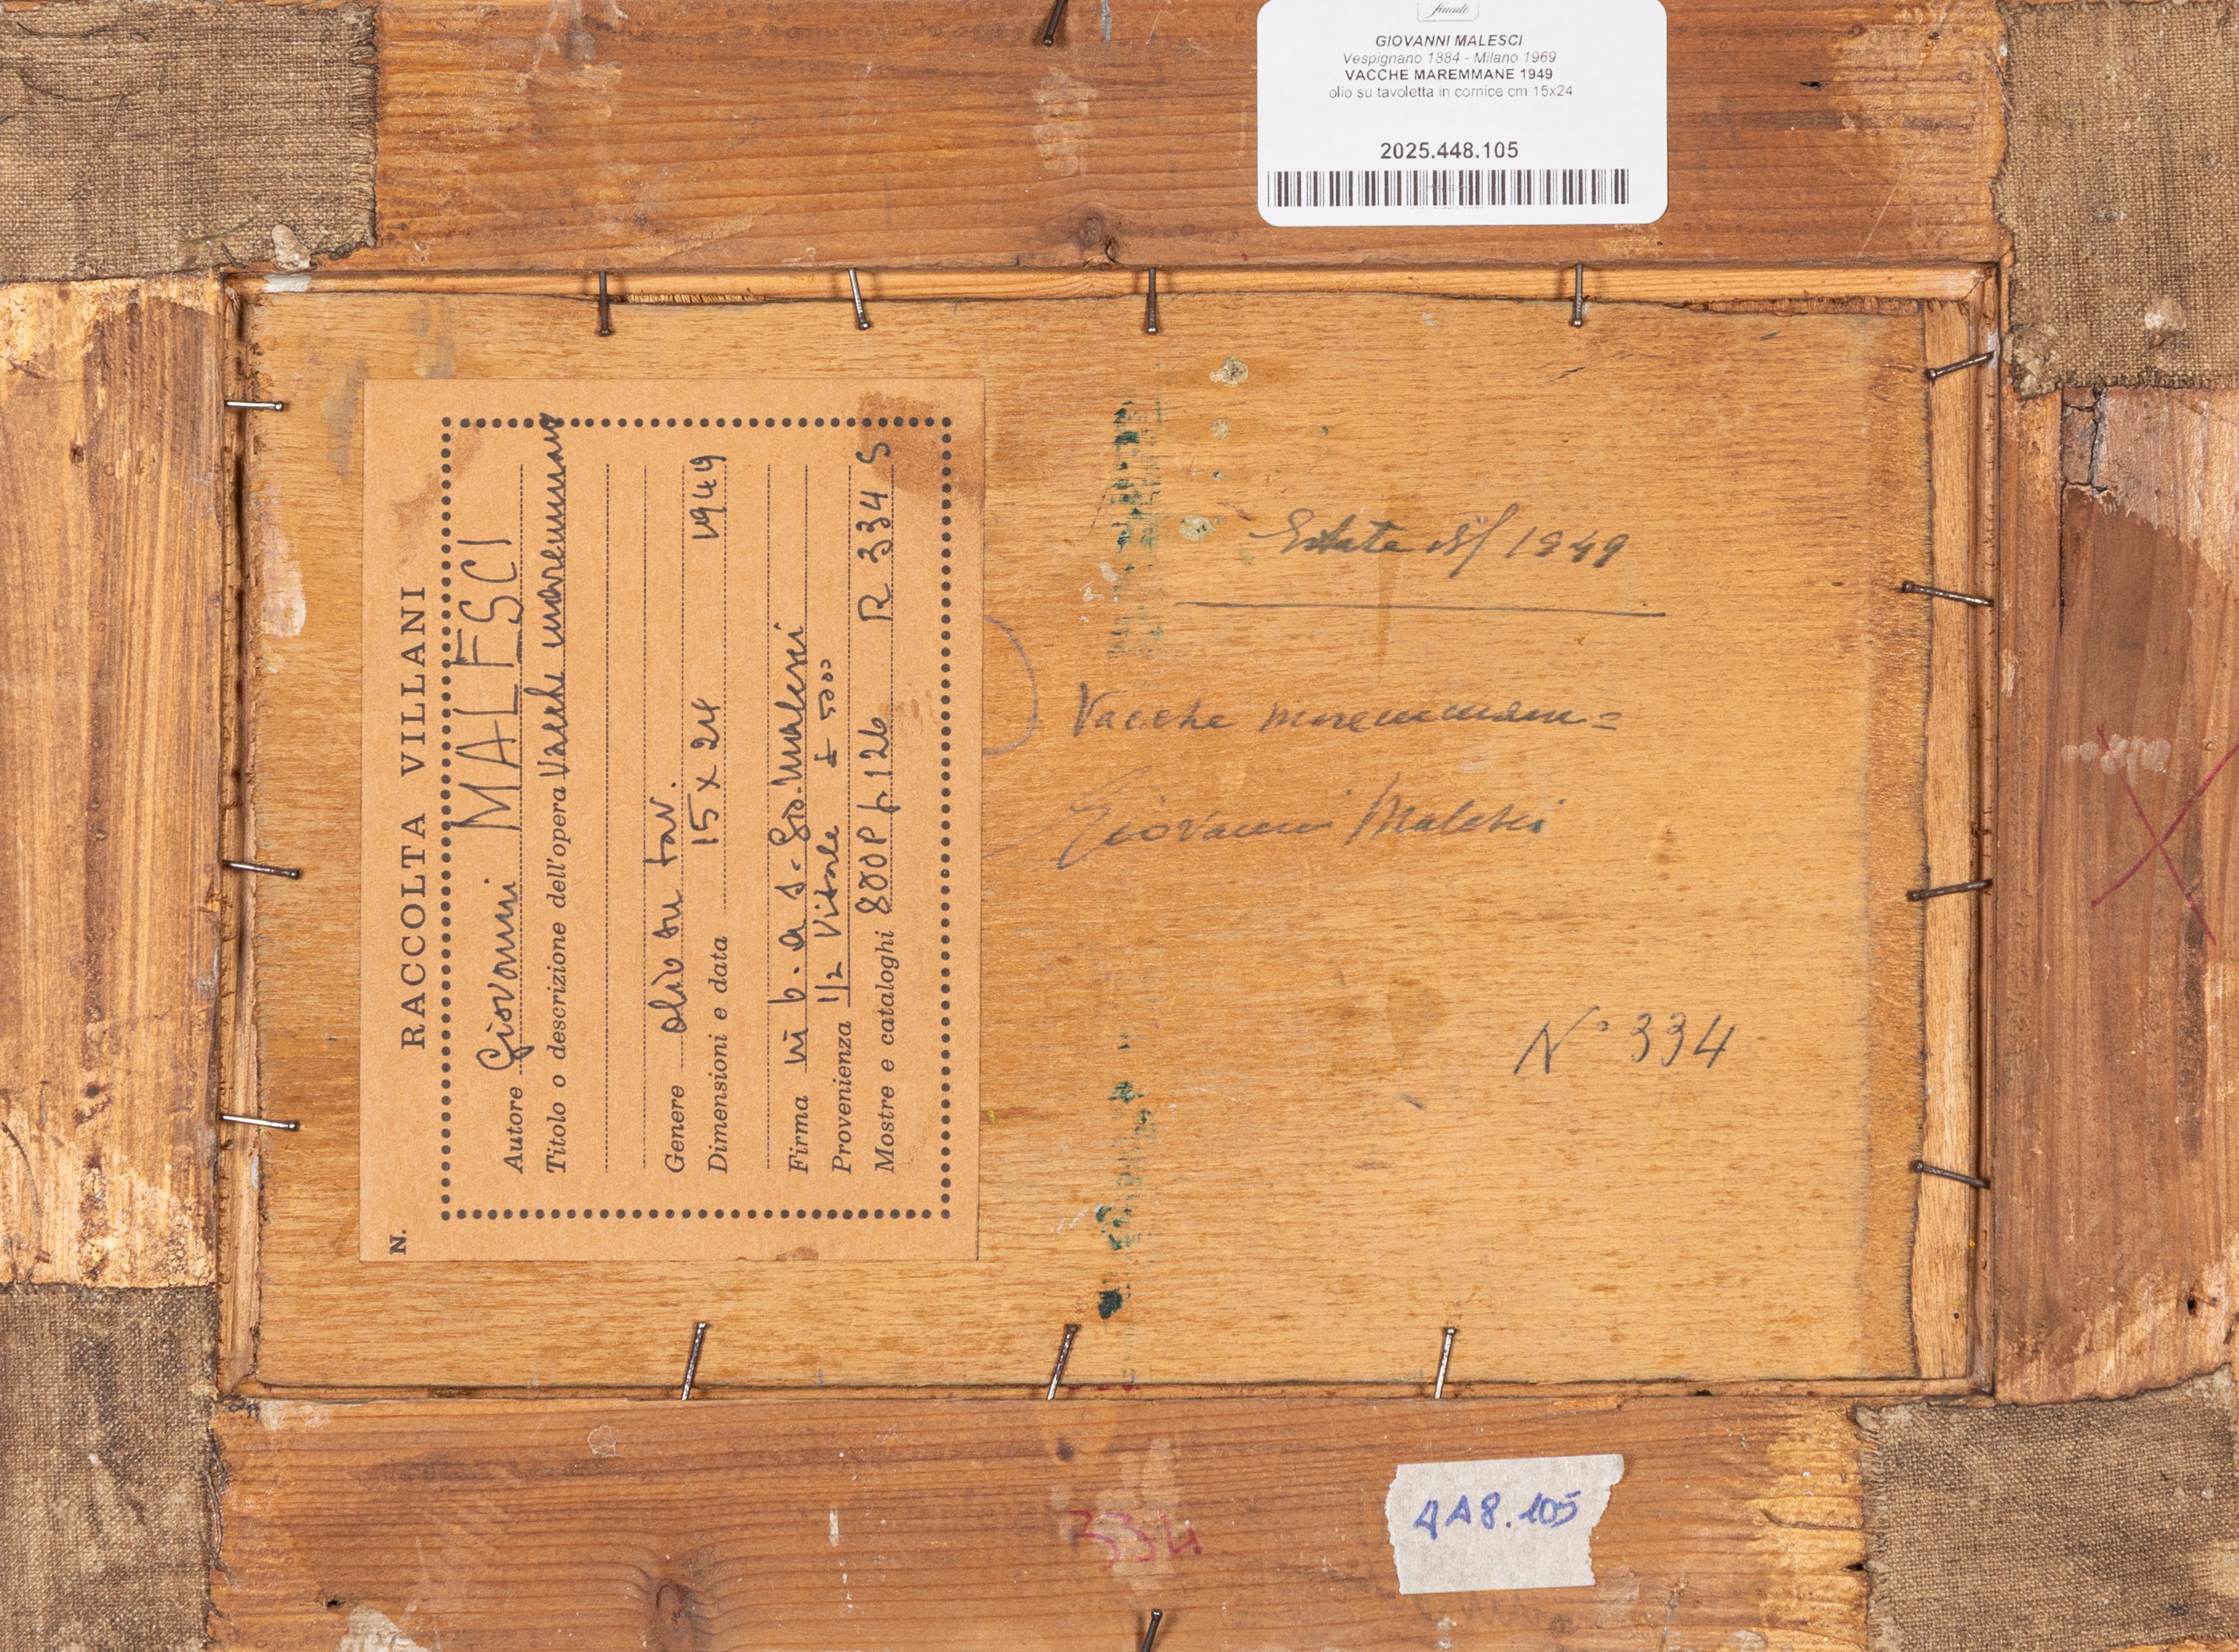 finarte
GIOVANNI MALESCI
Vespignano 1884 - Milano 1969
VACCHE MAREMMANE 1949
olio su tavoletta in cornice cm 15x24
2025.448.105
N.
RACCOLTA VILLANI
Autore Giovanni MALESCI
Titolo o descrizione dell'opera Vacche maremmane
Genere olio su tav.
Dimensioni e data 15 x 24 1949
Firma in b. a s. Gio. Malesci
Provenienza 1/2 Vitale £ 5000
Mostre e cataloghi 800P p 126 R 334 S
Estate 1949
Vacche maremmane
Giovanni Malesci
N° 334
334
448.105